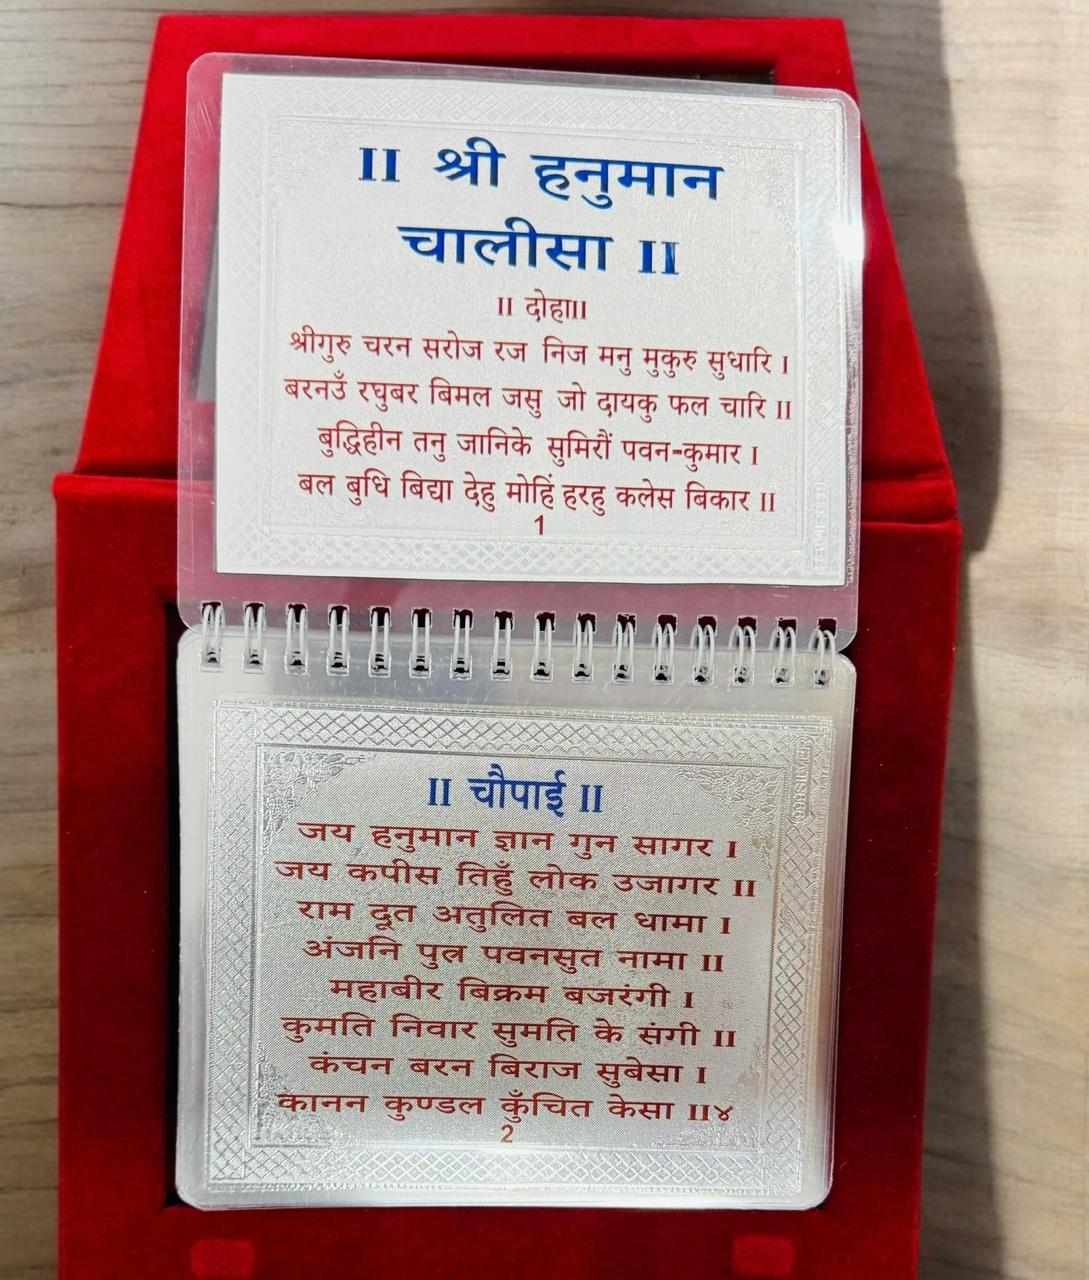 II श्री हनुमान
चालीसा II
II दोहाII
श्रीगुरु चरन सरोज रज निज मनु मुकुरु सुधारि I
बरनउँ रघुबर बिमल जसु जो दायकु फल चारि II
बुद्धिहीन तनु जानिके सुमिरौं पवन-कुमार I
बल बुधि बिद्या देहु मोहिं हरहु कलेस बिकार II
1
II चौपाई II
जय हनुमान ज्ञान गुन सागर I
जय कपीस तिहुँ लोक उजागर II
राम दूत अतुलित बल धामा I
अंजनि पुत्र पवनसुत नामा II
महाबीर बिक्रम बजरंगी I
कुमति निवार सुमति के संगी II
कंचन बरन बिराज सुबेसा I
कानन कुण्डल कुँचित केसा II४
2